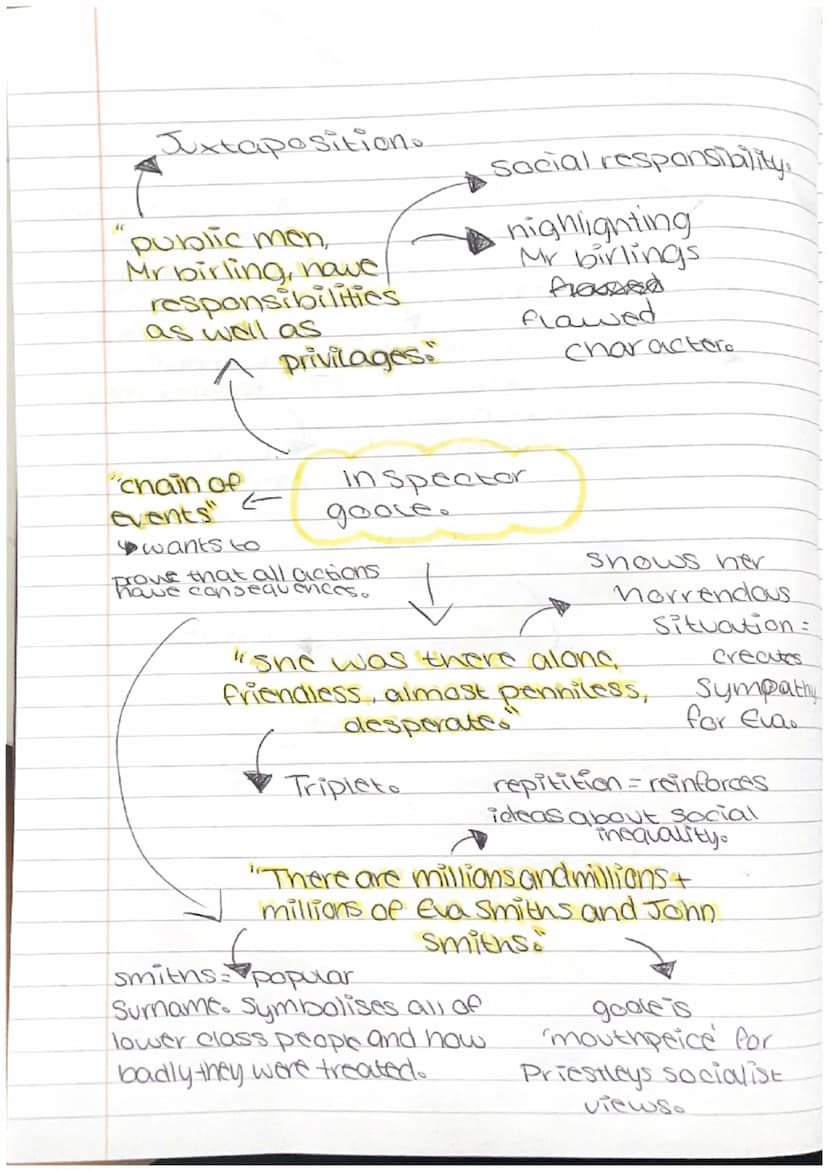 Juxtaposition.
social responsibility.
"public men,
Mr birling, have
responsibilities
as well as
privilages."
highlighting
Mr birlings
flawed
character.
inspector
goole.
"chain of
events"
wants to
prove that all actions
have consequences.
shows her
horrendous
situation =
creates
sympathy
for Eva.
"she was there alone,
friendless, almost penniless,
desperate."
Triplet.
repitition = reinforces
ideas about social
inequality.
"There are millions and millions +
millions of Eva Smiths and John
Smiths."
smiths = popular
surname. Symbolises all of
lower class people and how
badly they were treated.
goole is
'mouthpeice' for
Priestleys socialist
views.